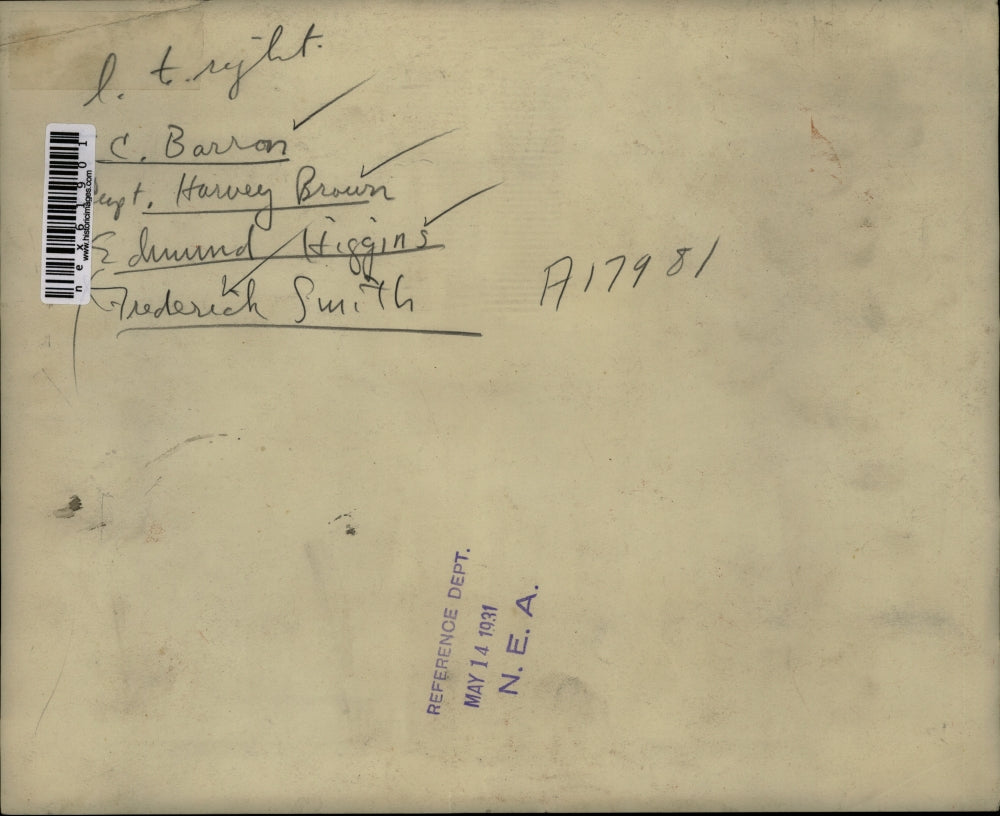 l. t. right.
C. Barron
Harvey Brown
Edmund Higgins
Frederick Smith
A17981
nex61901
www.historicimages.com
REFERENCE DEPT.
MAY 14 1931
N. E. A.